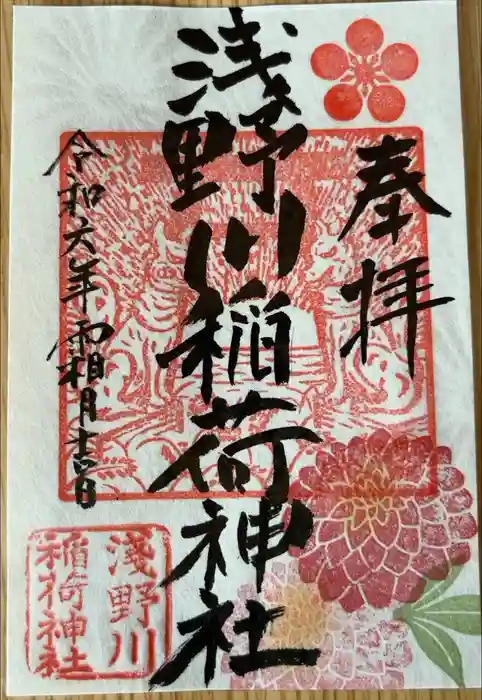 奉拝
浅野川稲荷神社
令和六年霜月吉日
淺野川
稲荷神社